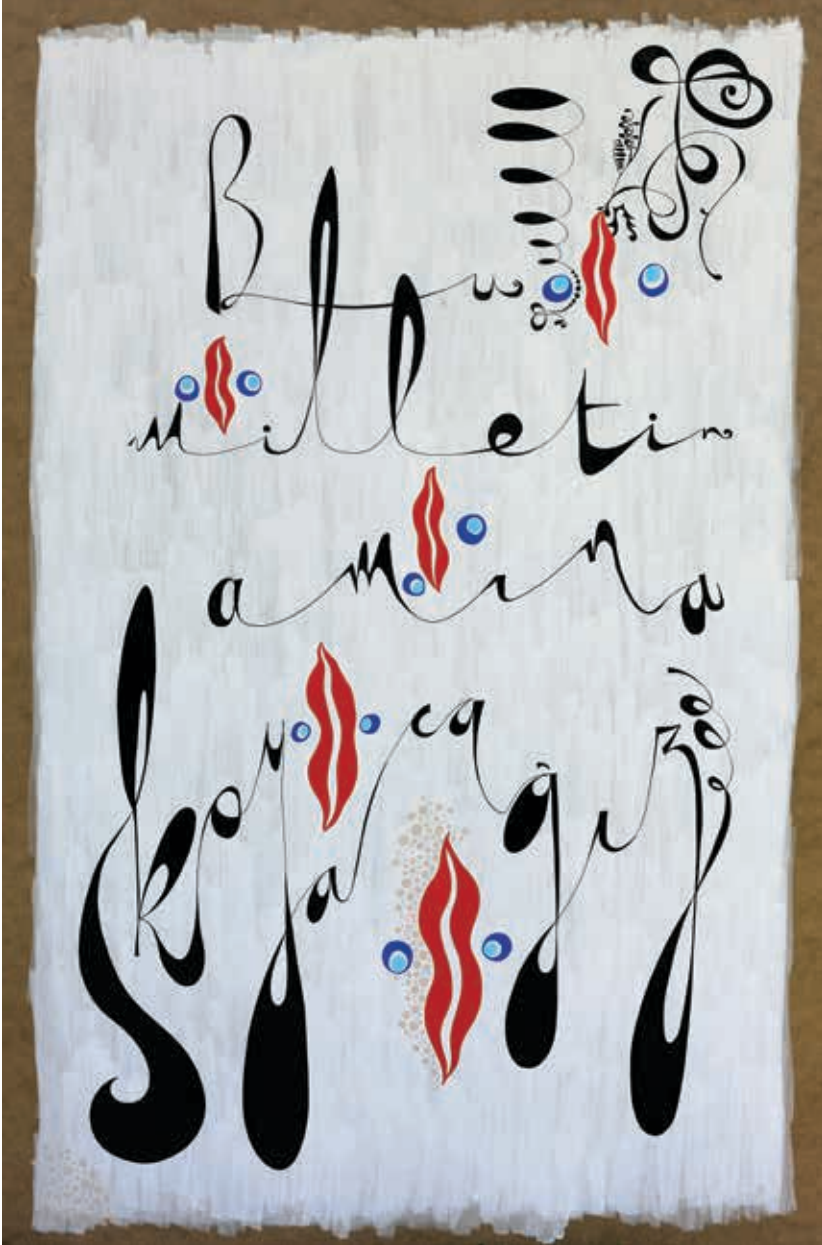 Bu
milletin
amına
koyacağız